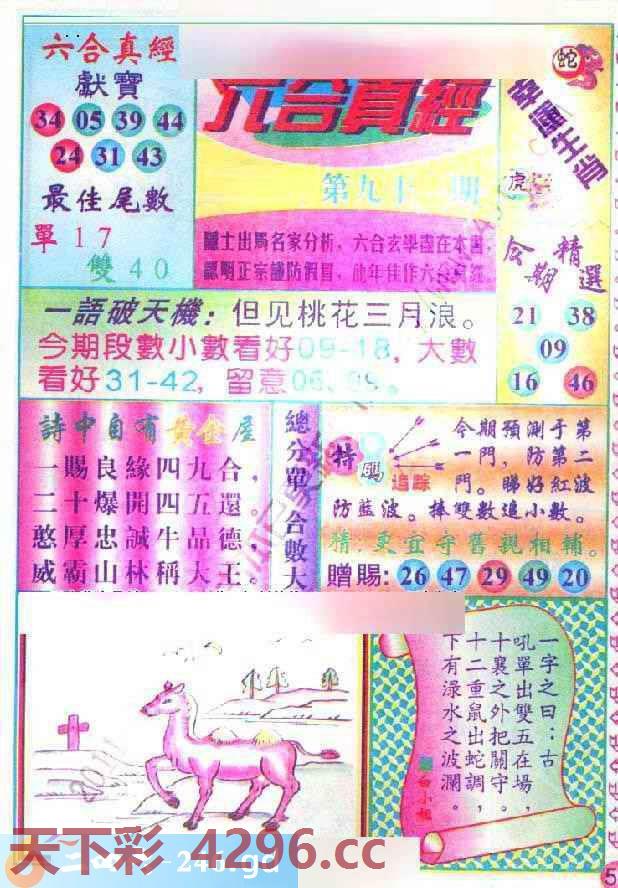 六合真經
獻寶
34 05 39 44
24 31 43
最佳尾數
單 1 7
雙 4 0
六合真經
第九十一期
隱士出馬名家分析，六合玄學盡在本書，
認明正宗謹防假冒，
蛇
幸運生肖
虎
今期精選
21 38
09
16 46
一語破天機：但见桃花三月浪。
今期段數小數看好09-18，大數
看好31-42，留意06、09。
詩中自有黃金屋
一賜良緣四九合，
二十爆開四五還。
憨厚忠誠牛品德，
威霸山林稱大王。
總分單 合數大
特碼
追踪
今期預測于第
一門，防第二
門。睇好紅波
防藍波。揀雙數追小數。
精：更宜守舊親相輔。
贈賜：26 47 29 49 20
一字之曰：古
吼單出雙五在場，
十襄之外把關守。
十二重鼠出蛇調，
下有渌水之波瀾。
白小姐
天下彩 4296.cc
5